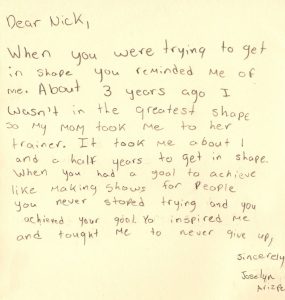 Dear Nick,
When you were trying to get
in shape you reminded me of
me. About 3 years ago I
wasn't in the greatest shape
so my mom took me to her
trainer. It took me about 1
and a half years to get in shape.
When you had a goal to achieve
like making shows for people
you never stoped trying and you
achieved your goal. Yo inspired me
and tought me to never give up,
Sincerely
Joselyn
Arizpe